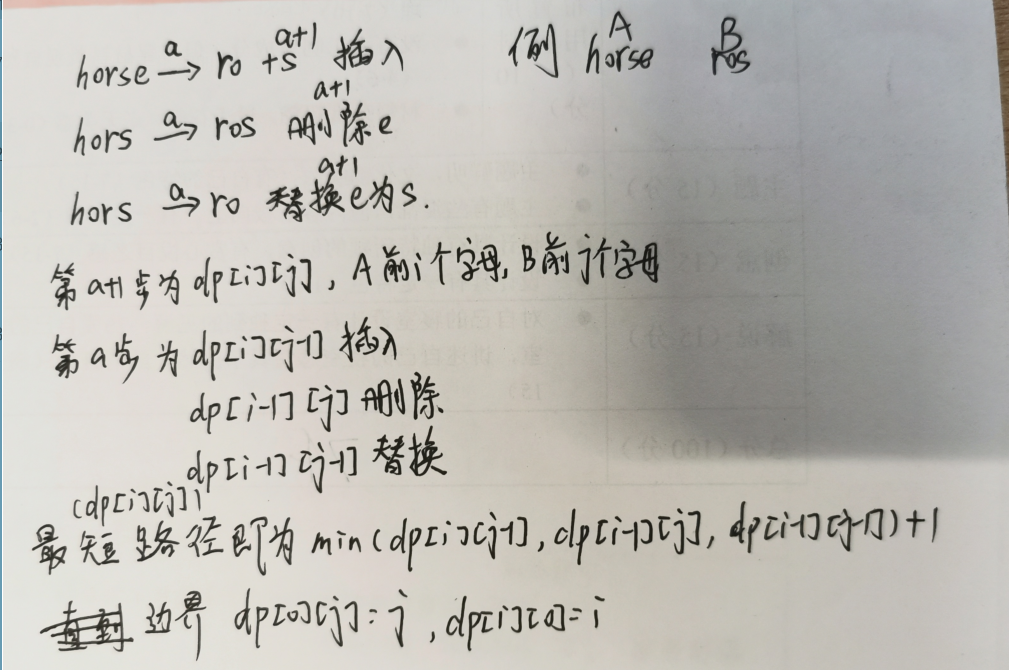 horse a→ ro +s a+1 插入 例 A horse B ros
hors a→ ros a+1 删除e
hors a→ ro a+1 替换e为s.
第a+1步为dp[i][j], A前i个字母, B前j个字母
第a步为dp[i][j-1] 插入
dp[i-1][j] 删除
dp[i-1][j-1] 替换
(dp[i][j])
最短路径即为min(dp[i][j-1], dp[i-1][j], dp[i-1][j-1])+1
边界 dp[0][j]=j, dp[i][0]=i